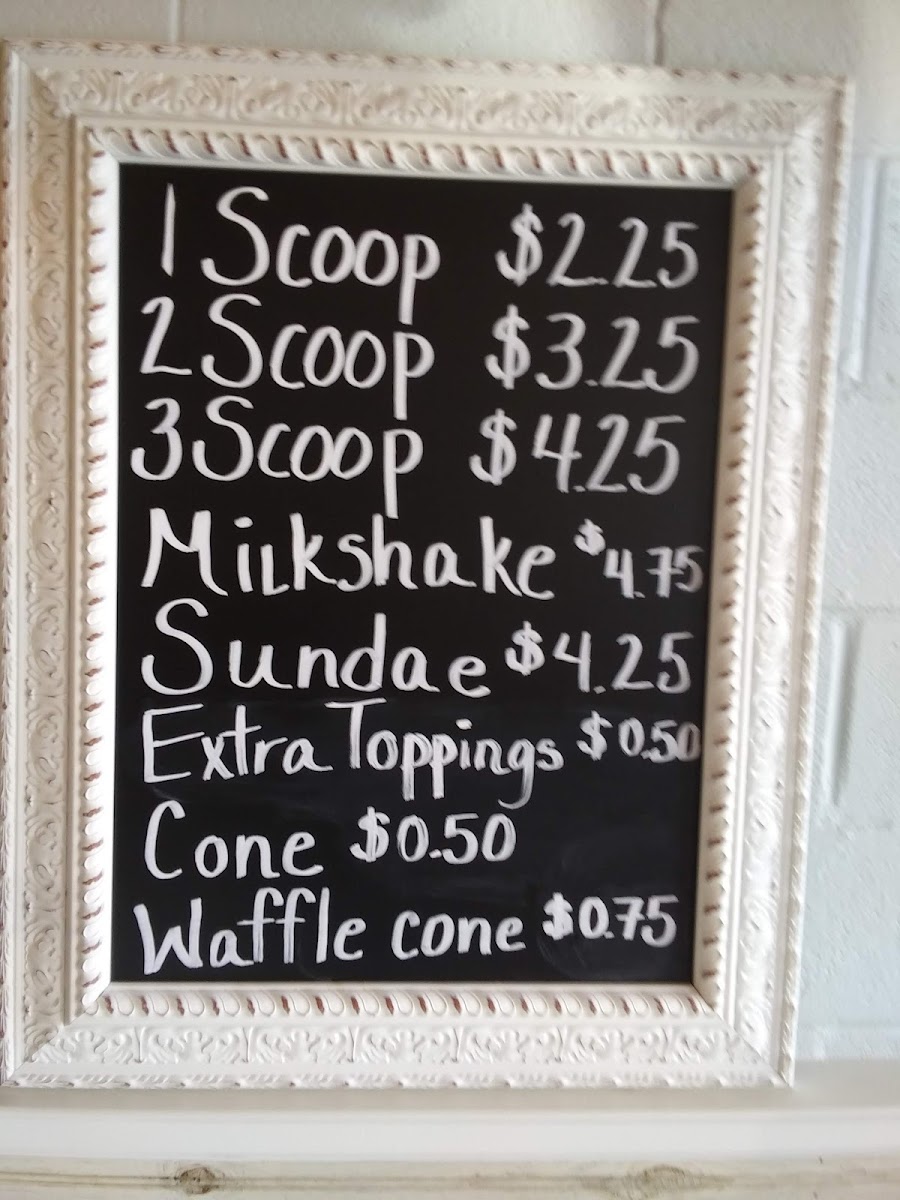 1 Scoop $2.25
2 Scoop $3.25
3 Scoop $4.25
Milkshake $4.75
Sundae $4.25
Extra Toppings $0.50
Cone $0.50
Waffle cone $0.75